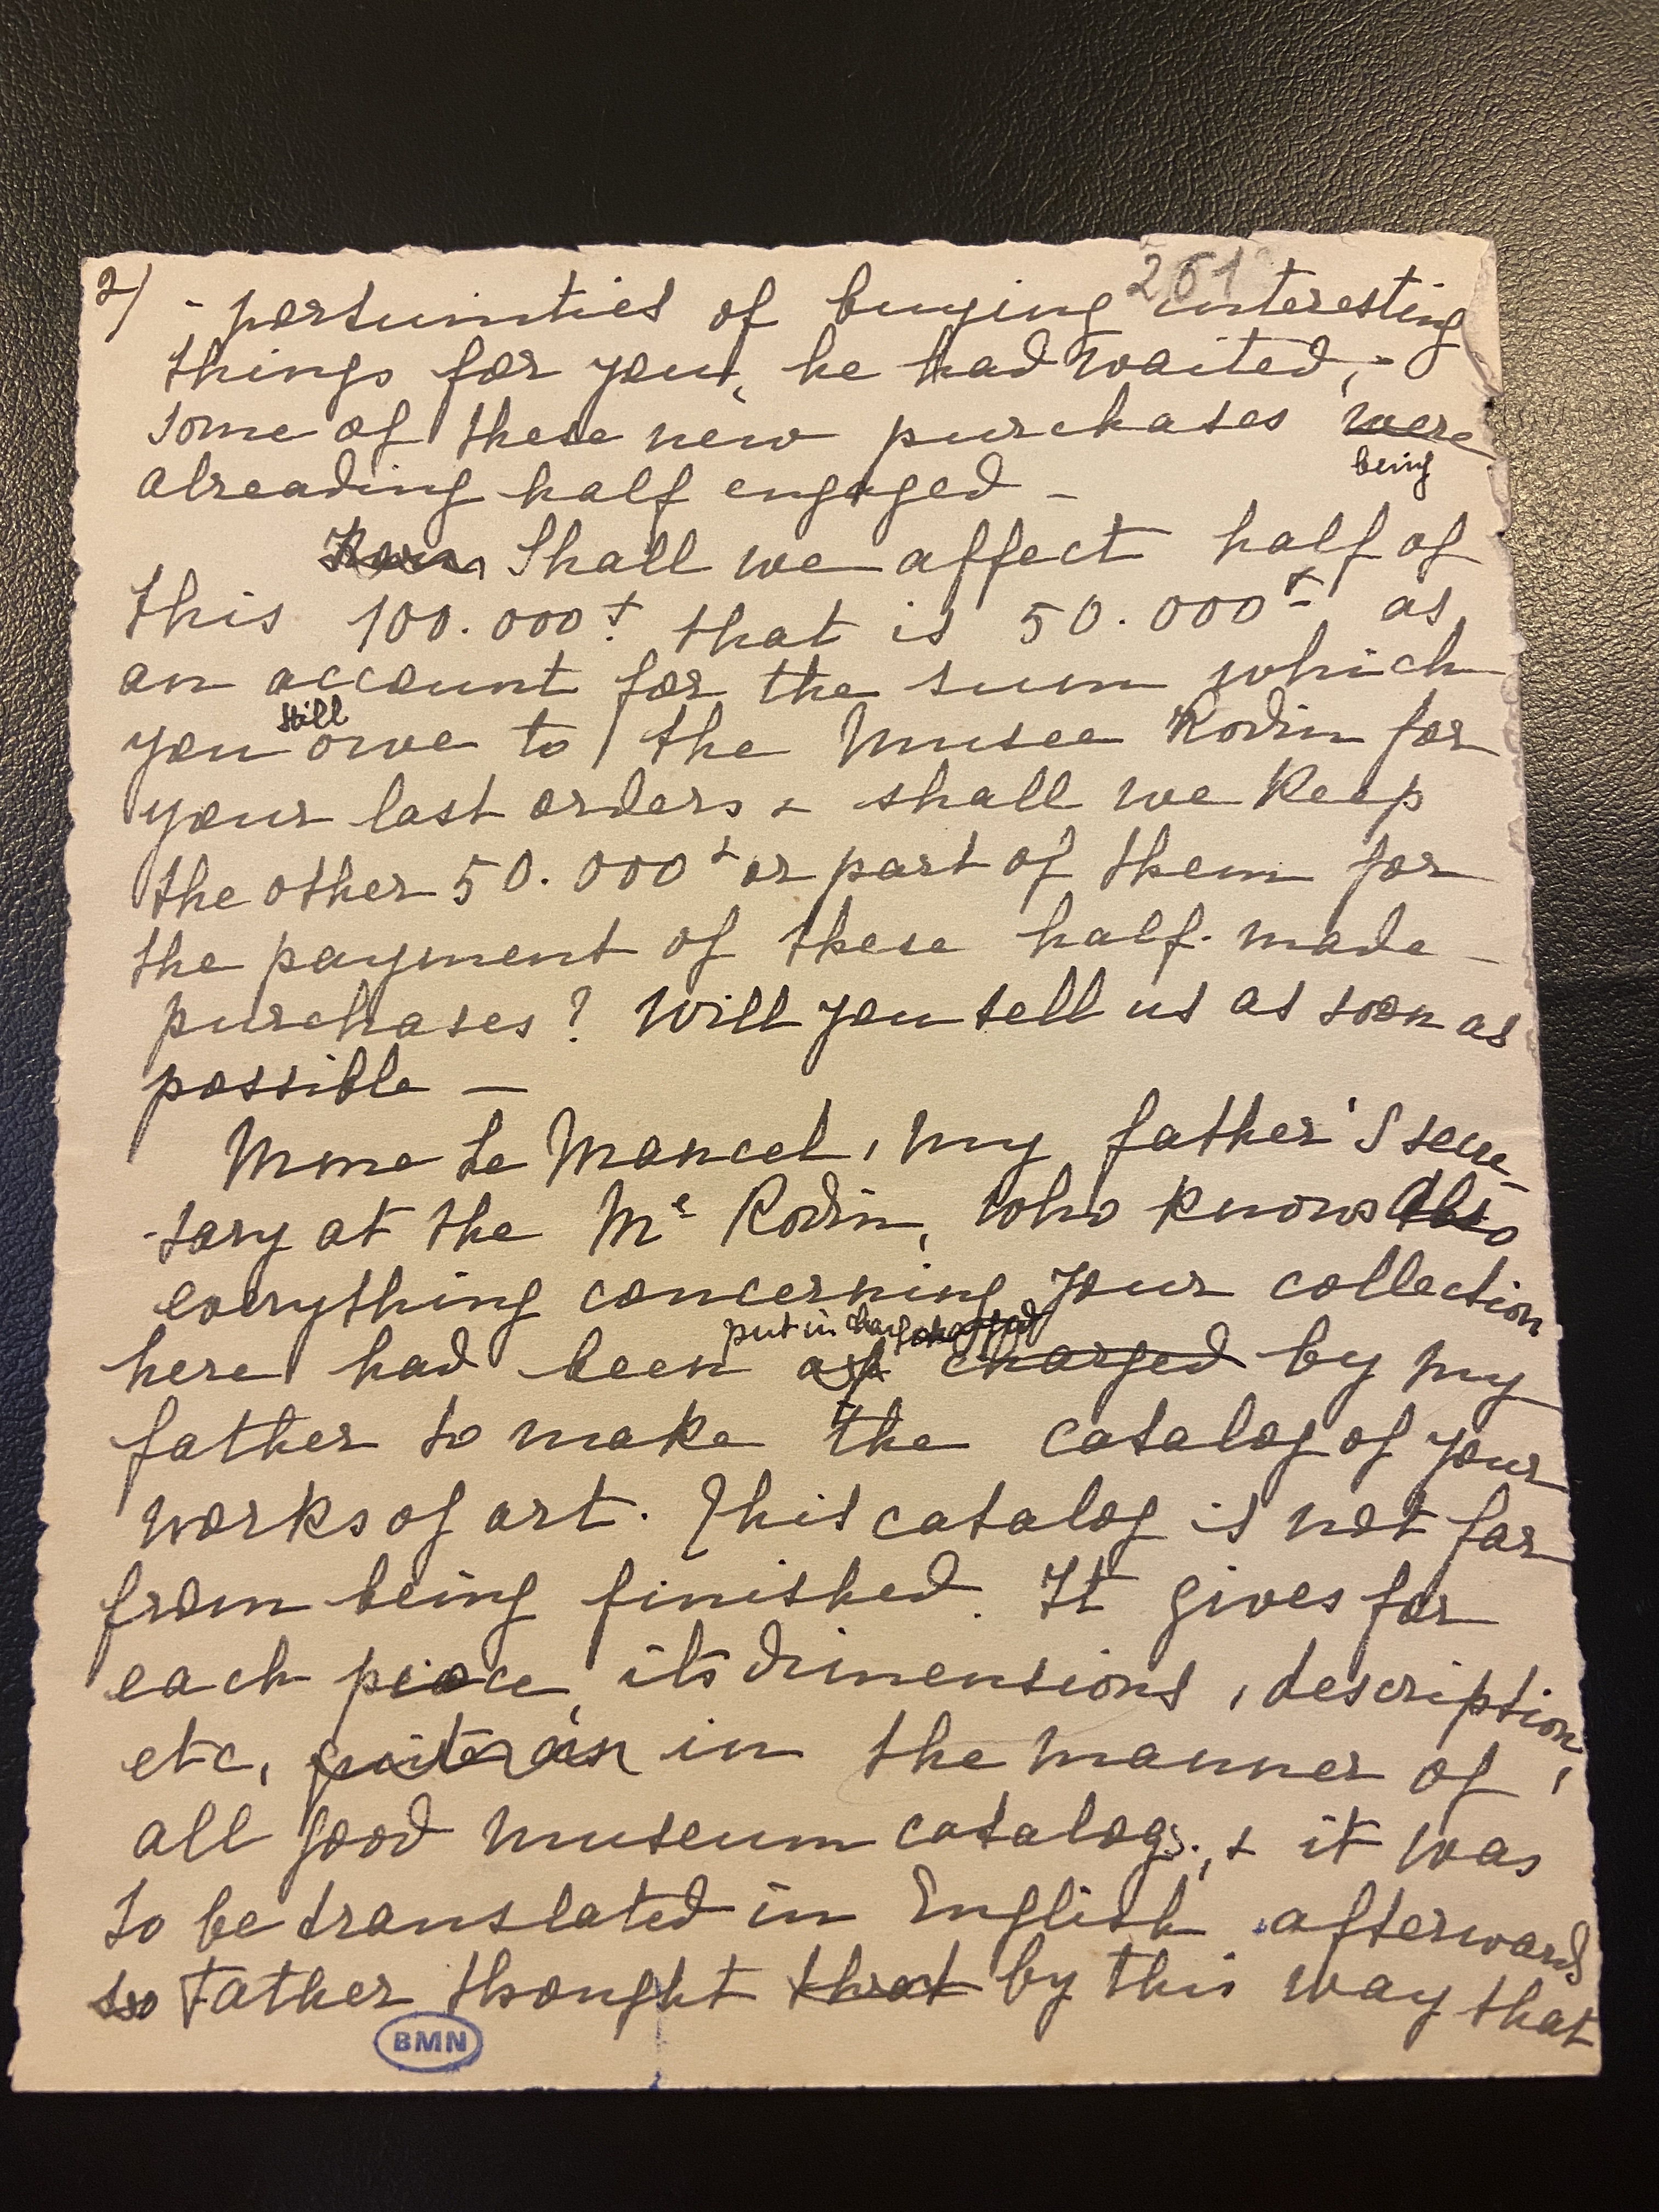 2) 261
-portunities of buying interesting
things for you, he had waited, -
some of these new purchases were
being
alreading half engaged -
Shall we affect half of
this 100.000 f. that is 50.000 f. as
an account for the sum which
still
you owe to the Musee Rodin for
your last orders & shall we keep
the other 50.000 f or part of them for
the payment of these half-made -
purchases? Will you tell us as soon as
possible —
Mme Le Mancel, my father's secre-
-tary at the Mᵉ Rodin, who knows also
everything concerning your collection
put in charge charged
here had been charged by my
father to make the catalog of your
works of art. This catalog is not far
from being finished. It gives for
each piece, its dimensions, description,
etc, in the manner of
all good museum catalogs., & it was
to be translated in English afterwards
so Father thought that by this way that
BMN